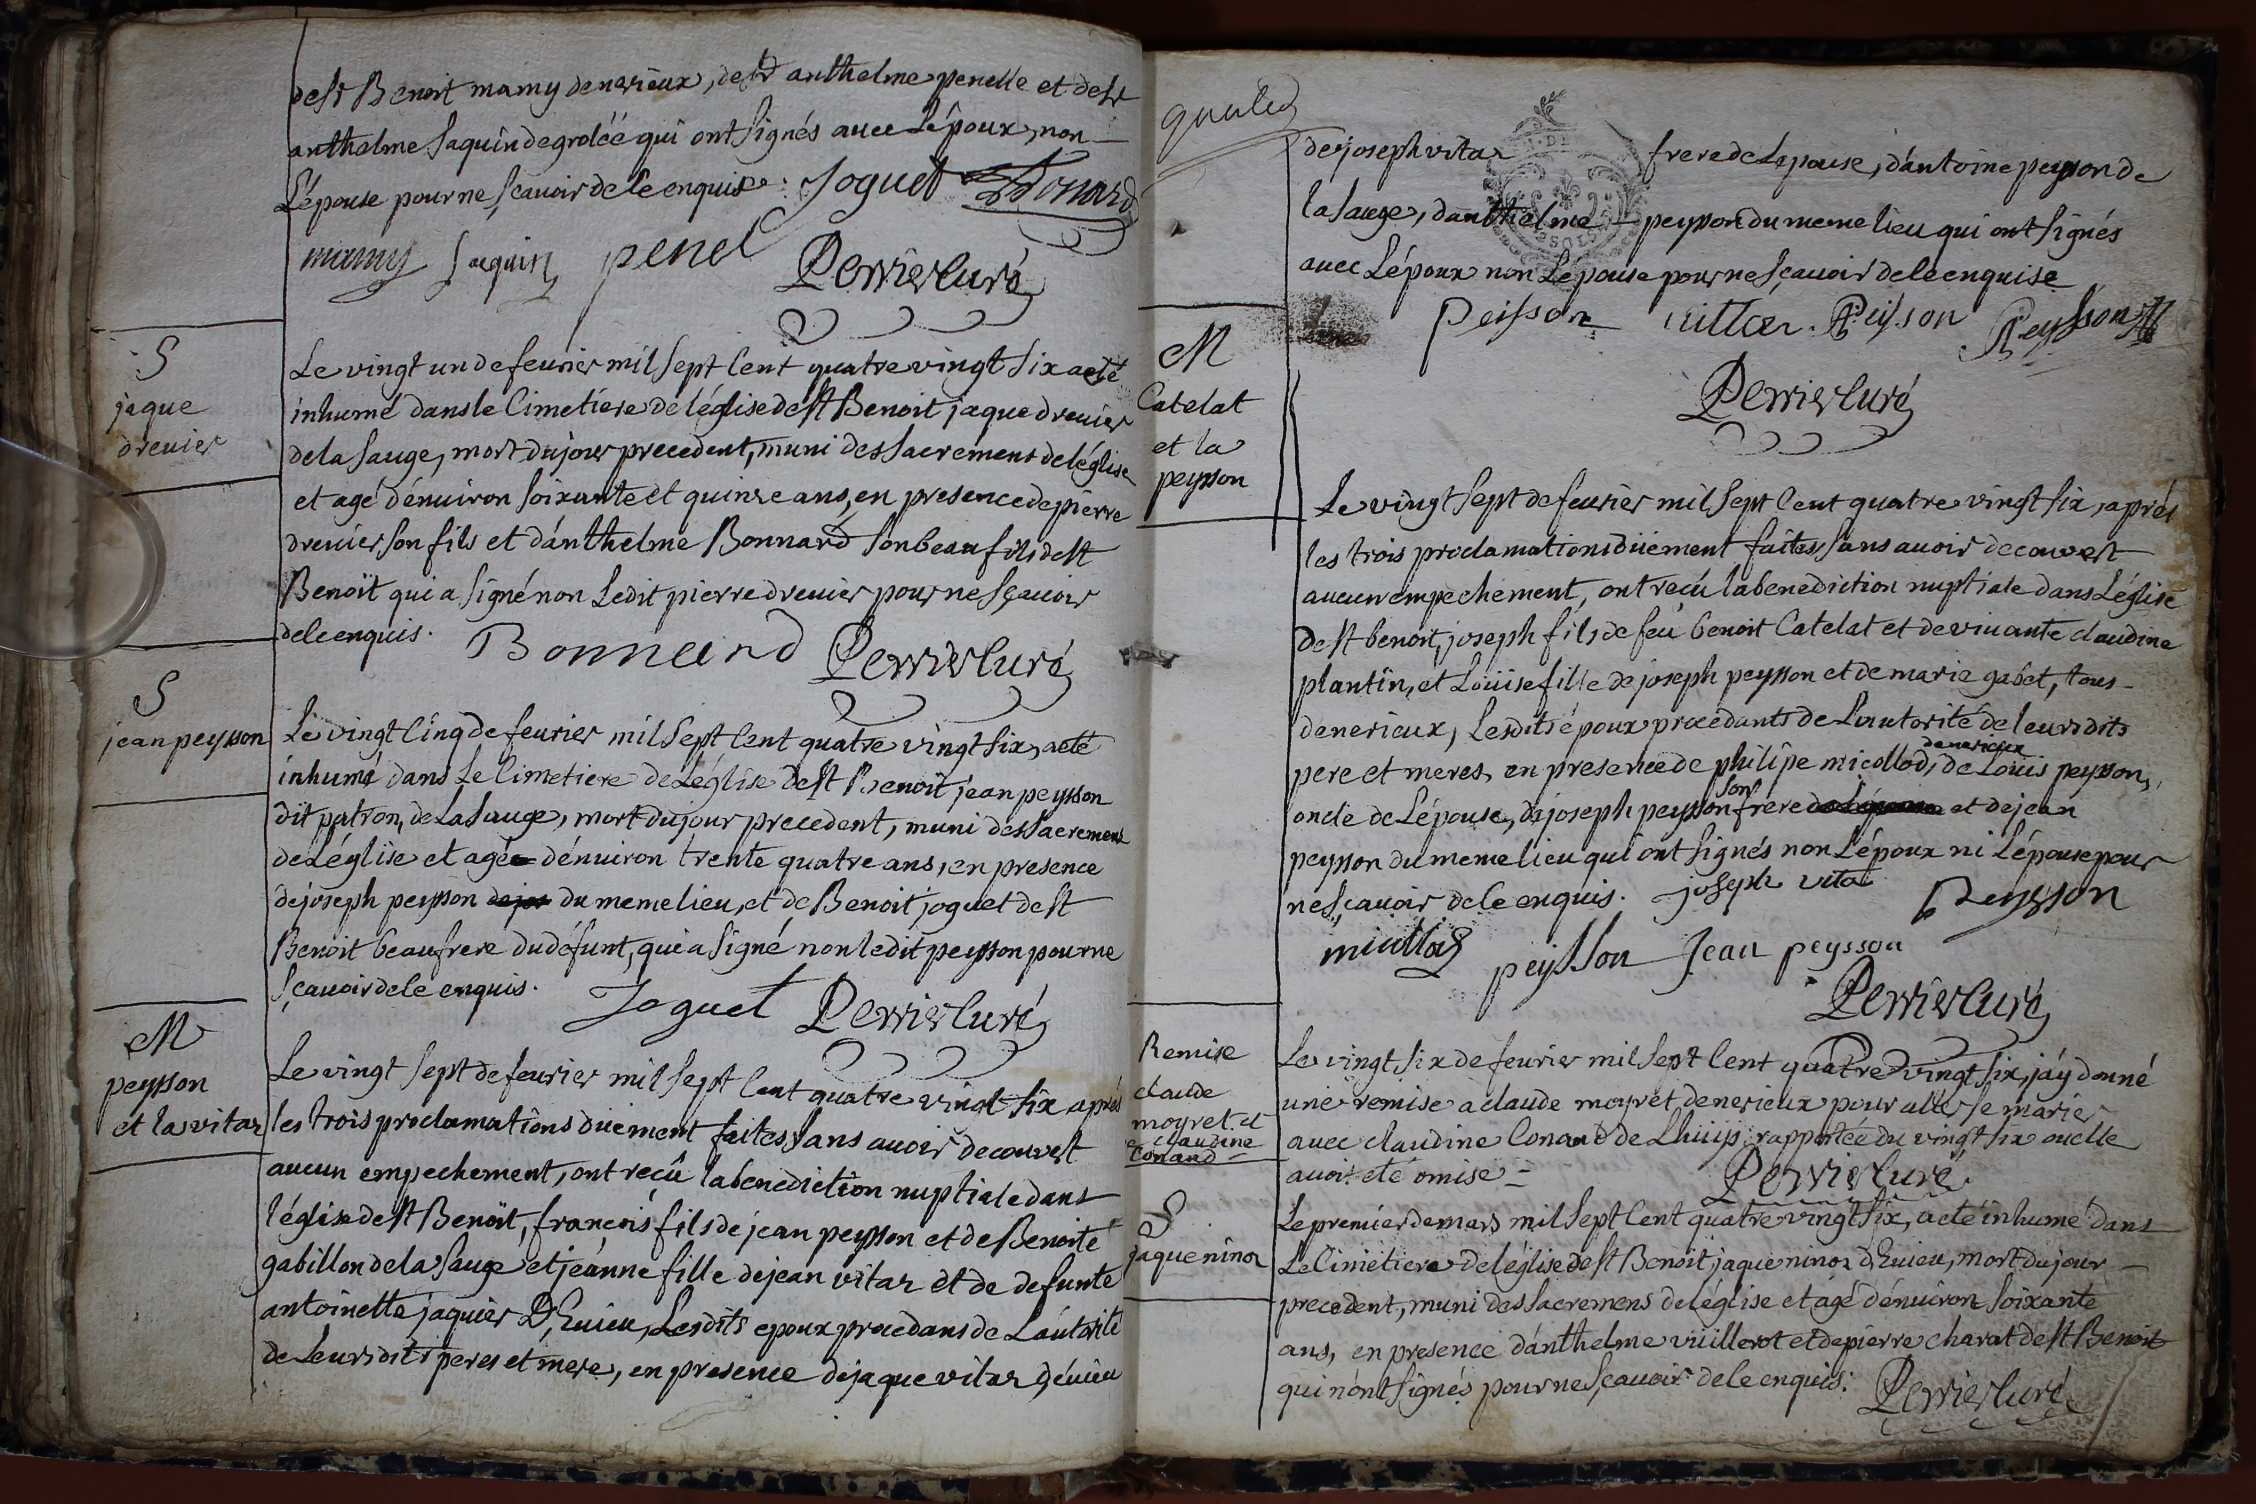 de sr Benoit mamy denerieux, de sr anthelme penelle et de sr
anthelme saquin de grolée qui ont signés avec L'époux, non
L'épouse pour ne sçavoir de ce enquise. Joguet Bonard
mamy saquin penel Perrier Curé
S
jaque
drevier
Le vingt un de fevrier mil sept Cent quatre vingt six a eté
inhumé dans le Cimetiere de l'église de st Benoit jaque drevier
de la sauge, mort du jour precedent, muni des sacremens de l'église
et agé d'énviron soixante et quinze ans, en presence de pierre
drevier son fils et d'ánthelme Bonnard son beau fils de st
Benoît qui a signé non Ledit pierre drevier pour ne sçavoir
de ce enquis. Bonnard Perrier Curé
S
jean peysson
Le vingt Cinq de fevrier mil sept Cent quatre vingt six, a eté
inhumé dans Le Cimetiere de L'église de st Benoît jean peysson
dit patron, de La sauge, mort du jour precedent, muni des sacremens
de L'église et agé d'énviron trente quatre ans, en presence
de joseph peysson du meme lieu, et de Benoit joguet de st
Benoit beaufrere du défunt, qui a signé non ledit peysson pour ne
sçavoir de ce enquis. Joguet Perrier Curé
M
peysson
et la vitar
Le vingt sept de fevrier mil sept Cent quatre vingt six aprés
les trois proclamations duement faites sans avoir decouvert
aucun empechement, ont recû la benediction nuptiale dans
l'église de st Benoît, françois fils de jean peysson et de Benoite
gabillon de la sauge et jeanne fille de jean vitar et de defunte
antoinette jaquier D'Evieu, Lesdits epoux procedans de L'autorité
de Leursdits peres et mere, en presence de jaque vitar d'évieu
de joseph vitar frere de L'epouse, d'antoine peysson de
la sauge, d'anthelme peysson du meme lieu qui ont signés
avec L'époux non L'épouse pour ne sçavoir de ce enquise
peisson vittar. Peyson Peysson
Perrier Curé
M
Catelat
et la
peysson
Le vingt sept de fevrier mil sept Cent quatre vingt six, aprés
les trois proclamations düement faites, sans avoir decouvert
aucun empechement, ont reçû la benediction nuptiale dans L'église
de st benoit, joseph fils de feu benoit Catelat et de vivante claudine
plantin, et Loüise fille de joseph peysson et de marie gabet, tous
denerieux, Lesdits époux procedants de L'autorité de leursdits
denerieux
pere et meres, en presence de philipe micollod, de Louis peysson,
son
oncle de L'épouse, de joseph peysson frere et de jean
peysson du meme lieu qui ont signés non L'époux ni L'épouse pour
ne sçavoir de ce enquis. joseph vitar Peysson
micollod peysson Jean peysson
Perrier Curé
Remise
claude
moyret et
claudine
Conand
Le vingt six de fevrier mil sept Cent quatre vingt six, j'áy donné
une remise a claude moyret denerieux pour aller se marier
avec claudine Conand de Lhuys, rapportée du vingt six ou elle
avoit eté omise = Perrier Curé.
S
jaque ninoz
Le premier de mars mil sept Cent quatre vingt six, a eté inhumé dans
Le Cimetiere de l'église de st Benoît, jaque ninoz d'Evieu, mort du jour
precedent, muni des sacremens de l'église et agé d'énviron soixante
ans, en presence d'ánthelme vuillerot et de pierre charat de st Benoit
qui n'ónt signés pour ne sçavoir de ce enquis. Perrier Curé